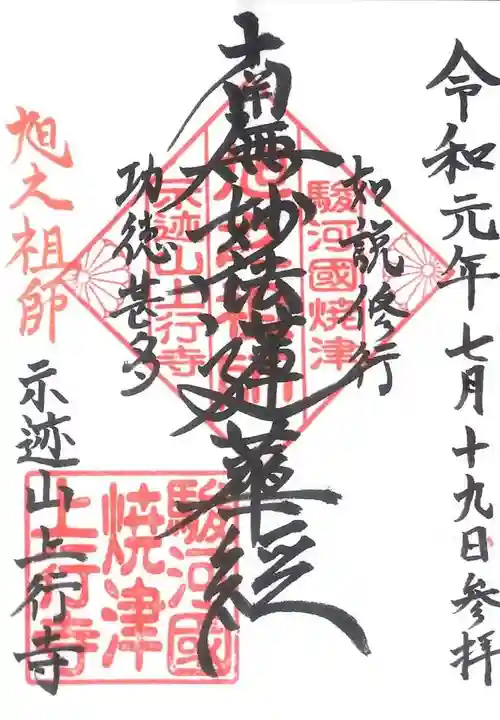 令和元年七月十九日参拝
如説修行
南無妙法蓮華経
功徳甚多
旭之祖師
示迹山上行寺
駿河國焼津
示迹山上行寺
駿河國
焼津
上行寺